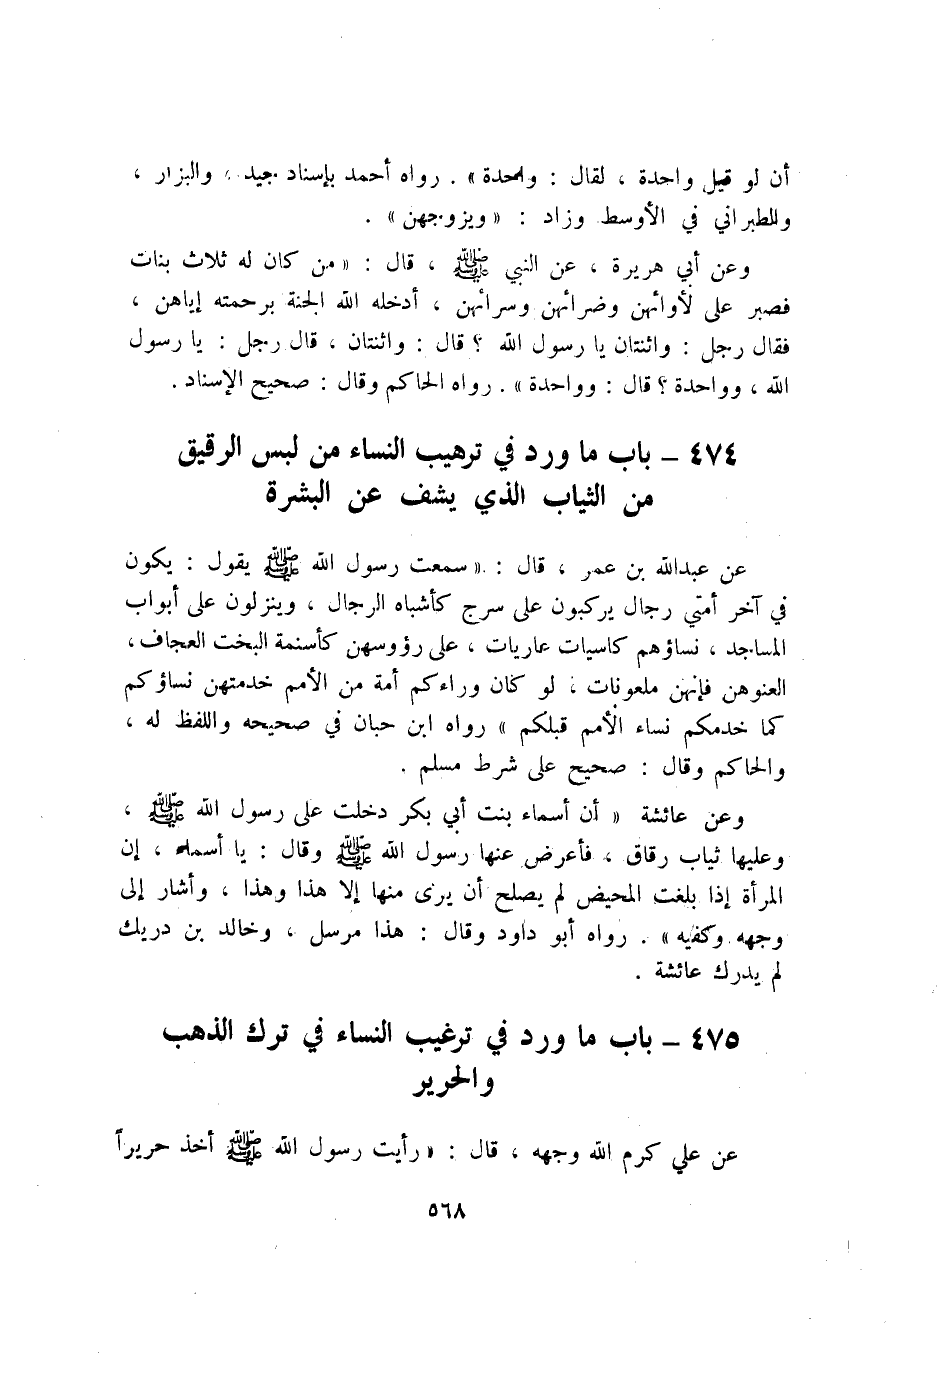 أن لو قيل واحدة ، لقال : واحدة » . رواه أحمد بإسناد جيد ، والبزار ،
والطبراني في الأوسط وزاد : « ويزوجهن » .
وعن أبي هريرة ، عن النبي ﷺ ، قال : « من كان له ثلاث بنات
فصبر على لأوائهن وضرائهن وسرائهن ، أدخله الله الجنة برحمته إياهن ،
فقال رجل : واثنتان يا رسول الله ؟ قال : واثنتان ، قال رجل : يا رسول
الله ، وواحدة ؟ قال : وواحدة » . رواه الحاكم وقال : صحيح الإسناد .
٤٧٤ – باب ما ورد في ترهيب النساء من لبس الرقيق
من الثياب الذي يشف عن البشرة
عن عبدالله بن عمر ، قال : « سمعت رسول الله ﷺ يقول : يكون
في آخر أمتي رجال يركبون على سرج كأشباه الرجال ، وينزلون على أبواب
المساجد ، نساؤهم كاسيات عاريات ، على رؤوسهن كأسنمة البخت العجاف ،
العنوهن فإنهن ملعونات ، لو كان وراءكم أمة من الأمم خدمتهن نساؤكم
كما خدمكم نساء الأمم قبلكم » رواه ابن حبان في صحيحه واللفظ له ،
والحاكم وقال : صحيح على شرط مسلم .
وعن عائشة « أن أسماء بنت أبي بكر دخلت على رسول الله ﷺ ،
وعليها ثياب رقاق ، فأعرض عنها رسول الله ﷺ وقال : يا أسماء ، إن
المرأة إذا بلغت المحيض لم يصلح أن يرى منها إلا هذا وهذا ، وأشار إلى
وجهه وكفيه » . رواه أبو داود وقال : هذا مرسل ، وخالد بن دريك
لم يدرك عائشة .
٤٧٥ – باب ما ورد في ترغيب النساء في ترك الذهب
والحرير
عن علي كرم الله وجهه ، قال : « رأيت رسول الله ﷺ أخذ حريراً
٥٦٨